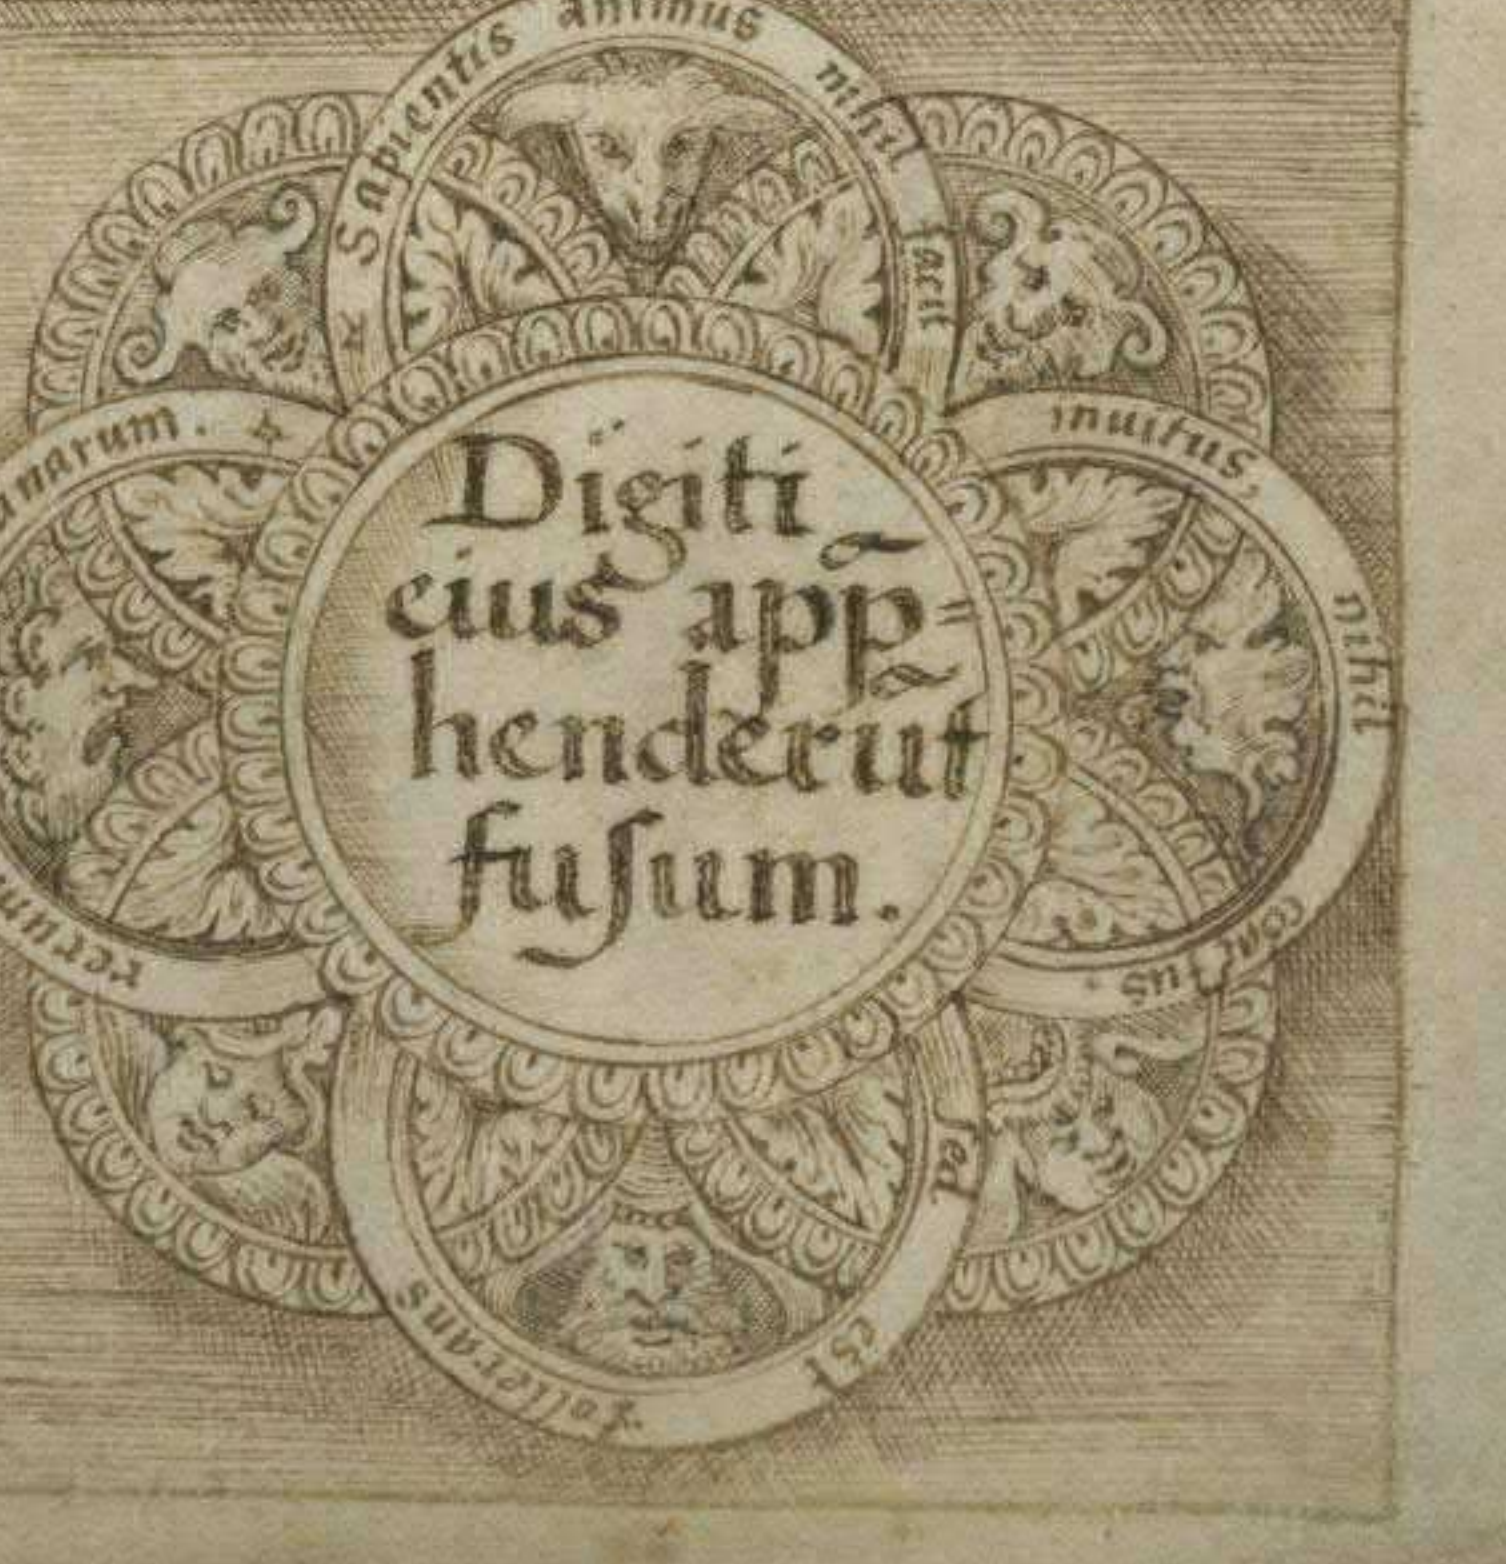 Sapientis animus nihil facit
inuitus,
nihil
coactus.
sed est
tollerans
rerum
Digiti
eius app̃=
henderũt
fuſum.